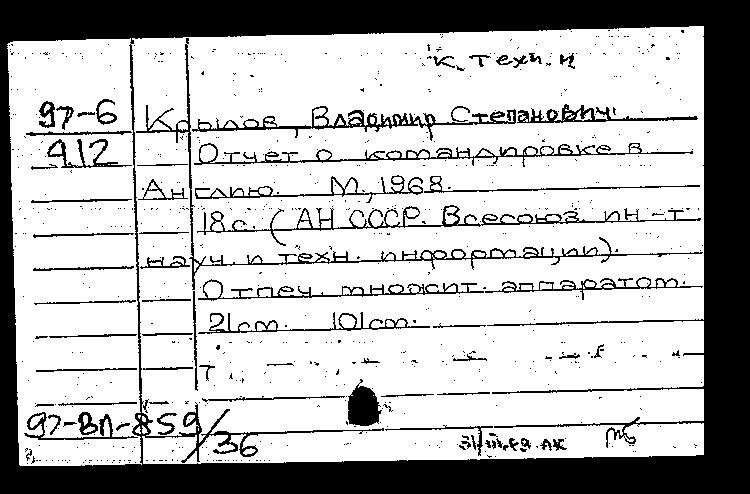 к. техн. н
97-6 Крылов, Владимир Степанович.
912 Отчет о командировке в
Англию. М., 1968.
18 с. (АН СССР. Всесоюз. ин-т
науч. и техн. информации).
Отпеч. множит. аппаратом.
21 cm. 101 cm.
97-ВЛ-859/36